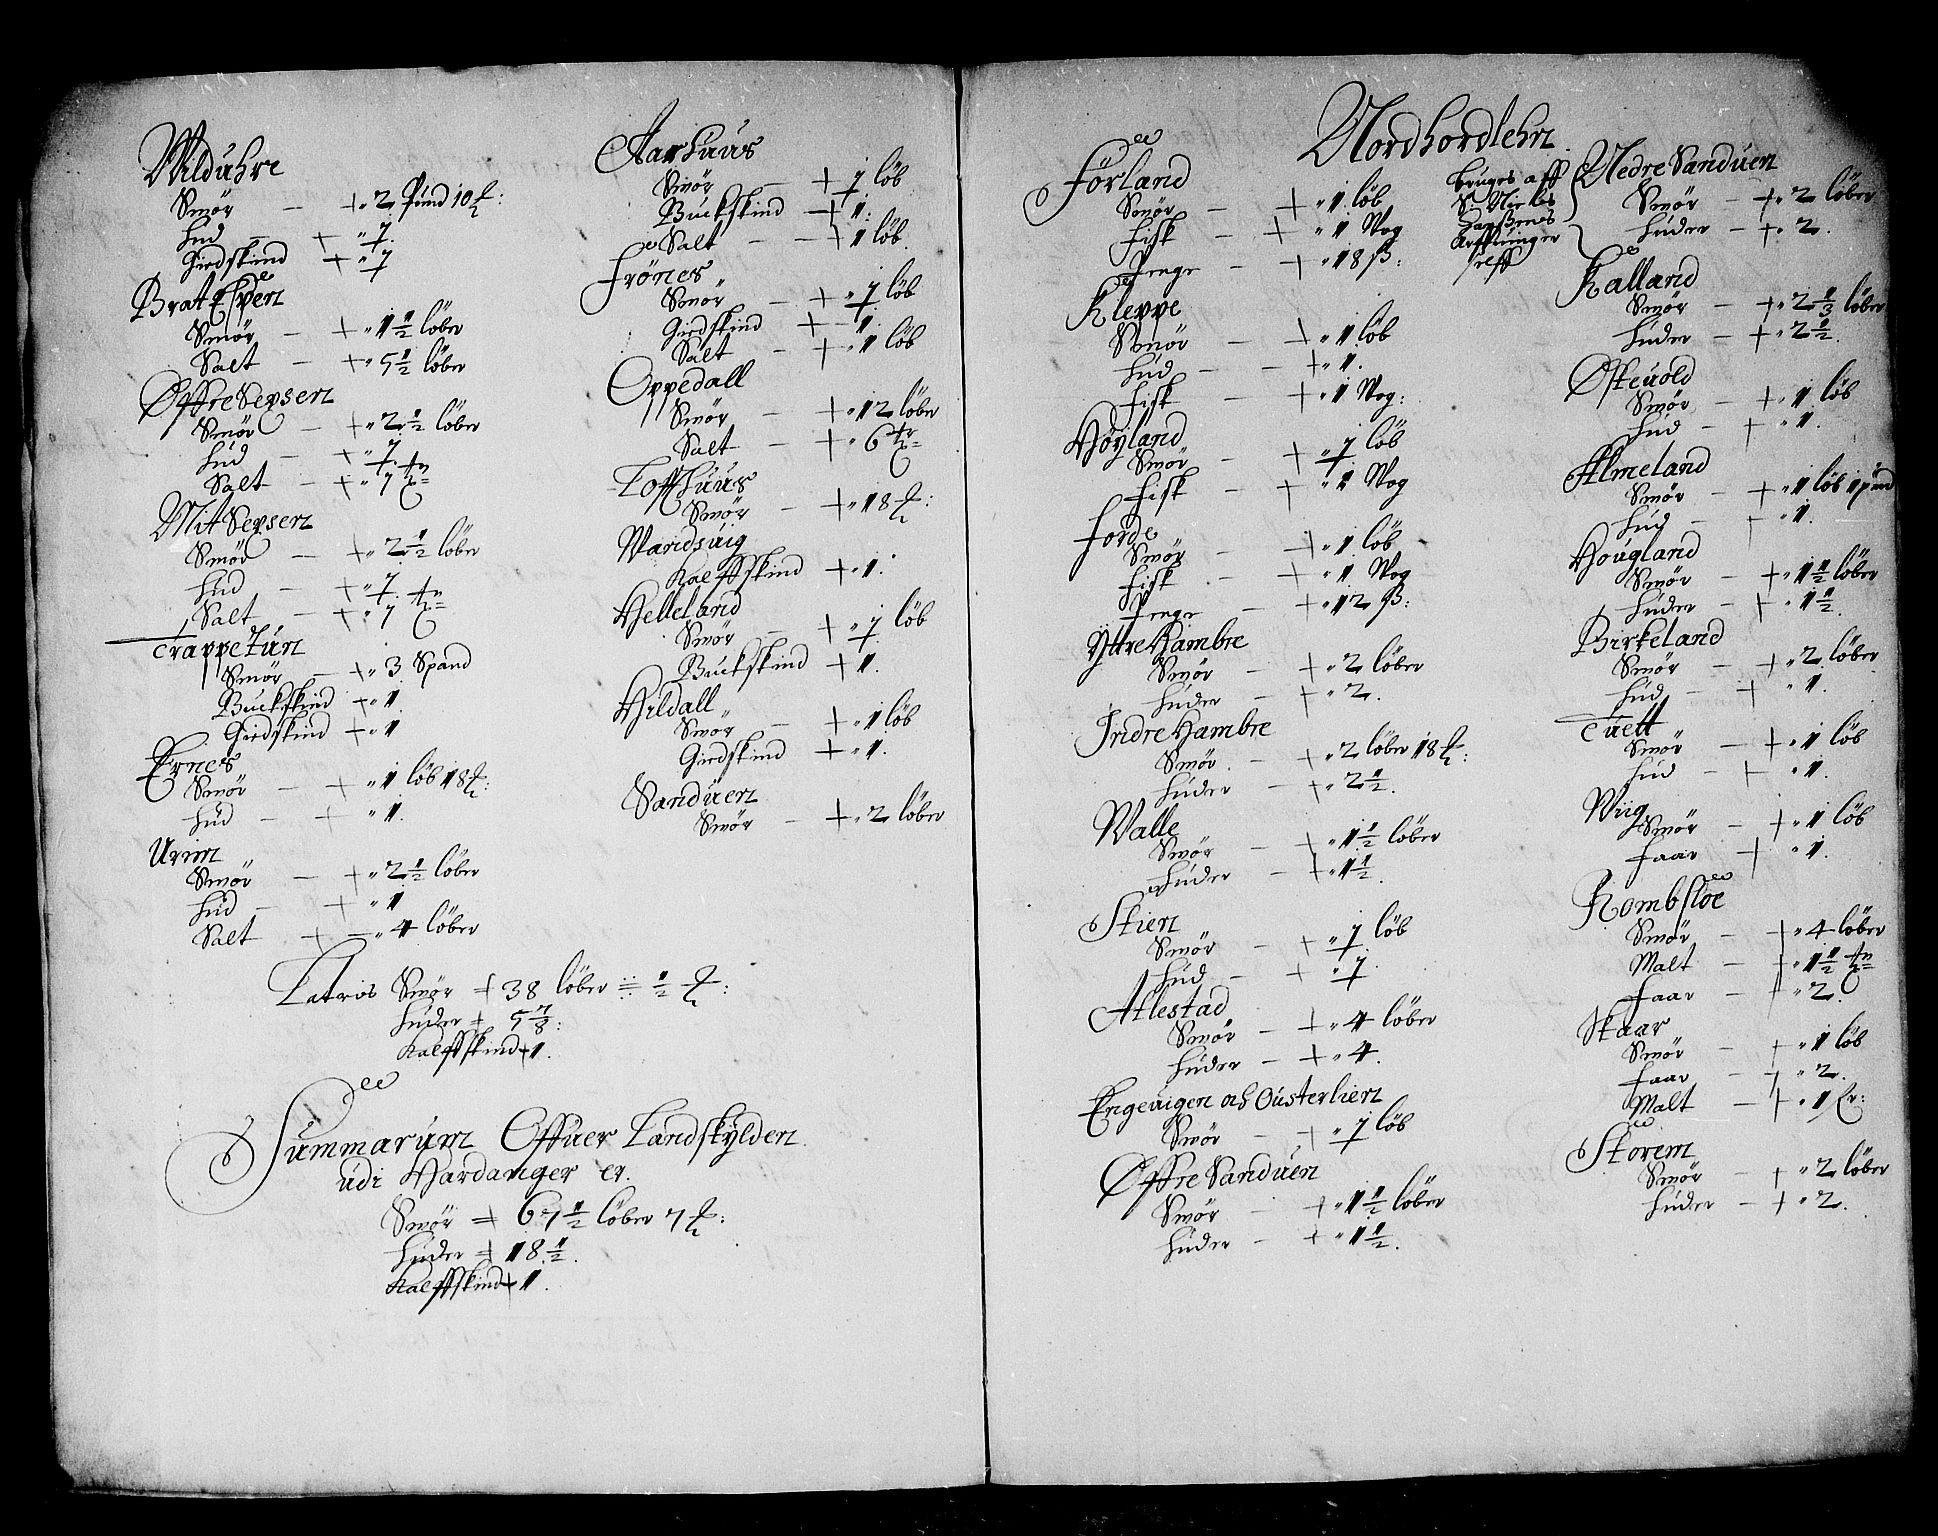 Milduhre
Smör — + „ 2 Pund 10 ℔:
Hud — + „ 1.
Giedskind + „ 1
Brat Espen
Smör — + „ 1 1/2 löber
Salt — + „ 5 1/2 löber
Øffre Sexsen
Smör — + „ 2 1/2 löber
Hud — + „ 1.
Salt — + „ 1 tn
Mit Sexsen
Smör — + „ 2 1/2 löber
Hud — + „ 1.
Salt — + „ 1 tn
Trappetun
Smör — + „ 3 Spand
Buckskind + „ 1
Giedskind + „ 1
Ernes
Smör — + „ 1 löb 18 ℔:
Hud — + „ 1.
Urim
Smör — + „ 2 1/2 löber
Hud — + „ 1
Salt — + „ 4 löber
Aarhuus
Smör — + 1 löb
Buckskind — + 1:
Salt — + 1 löb.
Frönes
Smör — + „ 1 löb
Giedskind + — 1.
Salt — + „ 1 löb
Oppedall
Smör — + „ 12 löber
Salt — + „ 6 tr
Loffthuus
Smör — + „ 18 ℔:
Mandsuig
Kalffskind + „ 1.
Helleland
Smör — + „ 1 löb
Buckskind + 1.
Hildall
Smör — + „ 1 löb
Giedskind + „ 1.
Sanduen
Smör — + „ 2 löber
Latris Smör + 38 löber 1/2 ℔:
Huder + 5 7/8:
Kalffskind + 1.
Summarum Offuer Landskylden
udi Hardanger er.
Smör + 67 1/2 löber 7 ℔:
Huder + 18 1/2.
Kalffskind + 1.
Nordhordlehn
Förland
Smör — + „ 1 löb
Fisk — + „ 1 Vog
Penge — + „ 18 ß:
bruges aff
S. Nieles
Hanßenes
Arffuinger
selff
Kleppe
Smör — + „ 1 löb
Hud — — + „ 1.
Fisk — + „ 1 Vog:
Höyland
Smör — + „ 1 löb
Fisk — + „ 1 Vog
Forde
Smör — + „ 1 löb
Fisk — + „ 1 Vog
Penge — + „ 12 ß:
Yttre Hambre
Smör — + „ 2 löber
Huder — + „ 2.
Indre Hambre
Smör — + „ 2 löber 18 ℔:
Huder — + „ 2 1/2.
Walle
Smör — + „ 1 1/2 löber
Huder — + „ 1 1/2.
Stien
Smör — + „ 1 löb
Hud — + „ 1.
Atlestad
Smör — + „ 4 löber
Huder — + „ 4.
Engeuigen och Ousterlien
Smör — + „ 1 löb
Øffre Sanduen
Smör — + „ 1 1/2 löber
Huder — + „ 1 1/2.
Nedre Sanduen
Smör — + „ 2 löber
Huder — + „ 2.
Kalland
Smör — + „ 2 2/3 löber
Huder — + „ 2 1/2.
Østeuold
Smör — + „ 1 löb
Hud — + „ 1.
Almeland
Smör — + „ 1 löb 1 pund
Hud — + „ 1.
Hougland
Smör — + „ 1 1/2 löber
Huder — + „ 1 1/2.
Birkeland
Smör — + „ 2 löber
Hud — + „ 1.
Tuett
Smör — + „ 1 löb
Hud — + „ 1.
Wiig
Smör — + „ 1 löb
Faar — + „ 1.
Rombslöe
Smör — + „ 4 löber
Malt — + „ 1 1/2 tn
Faar — + „ 2.
Skaar
Smör — + „ 1 löb
Faar — + „ 2.
Malt — + „ 1
Storem
Smör — + „ 2 löber
Huder — + „ 2.